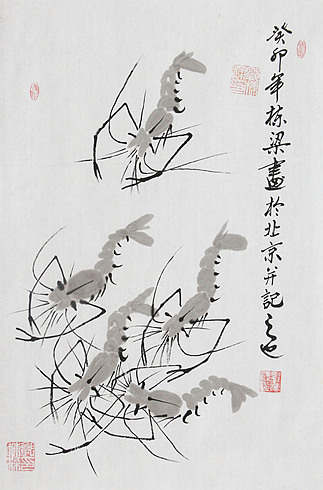 癸卯年栋梁畫於北京并記之也